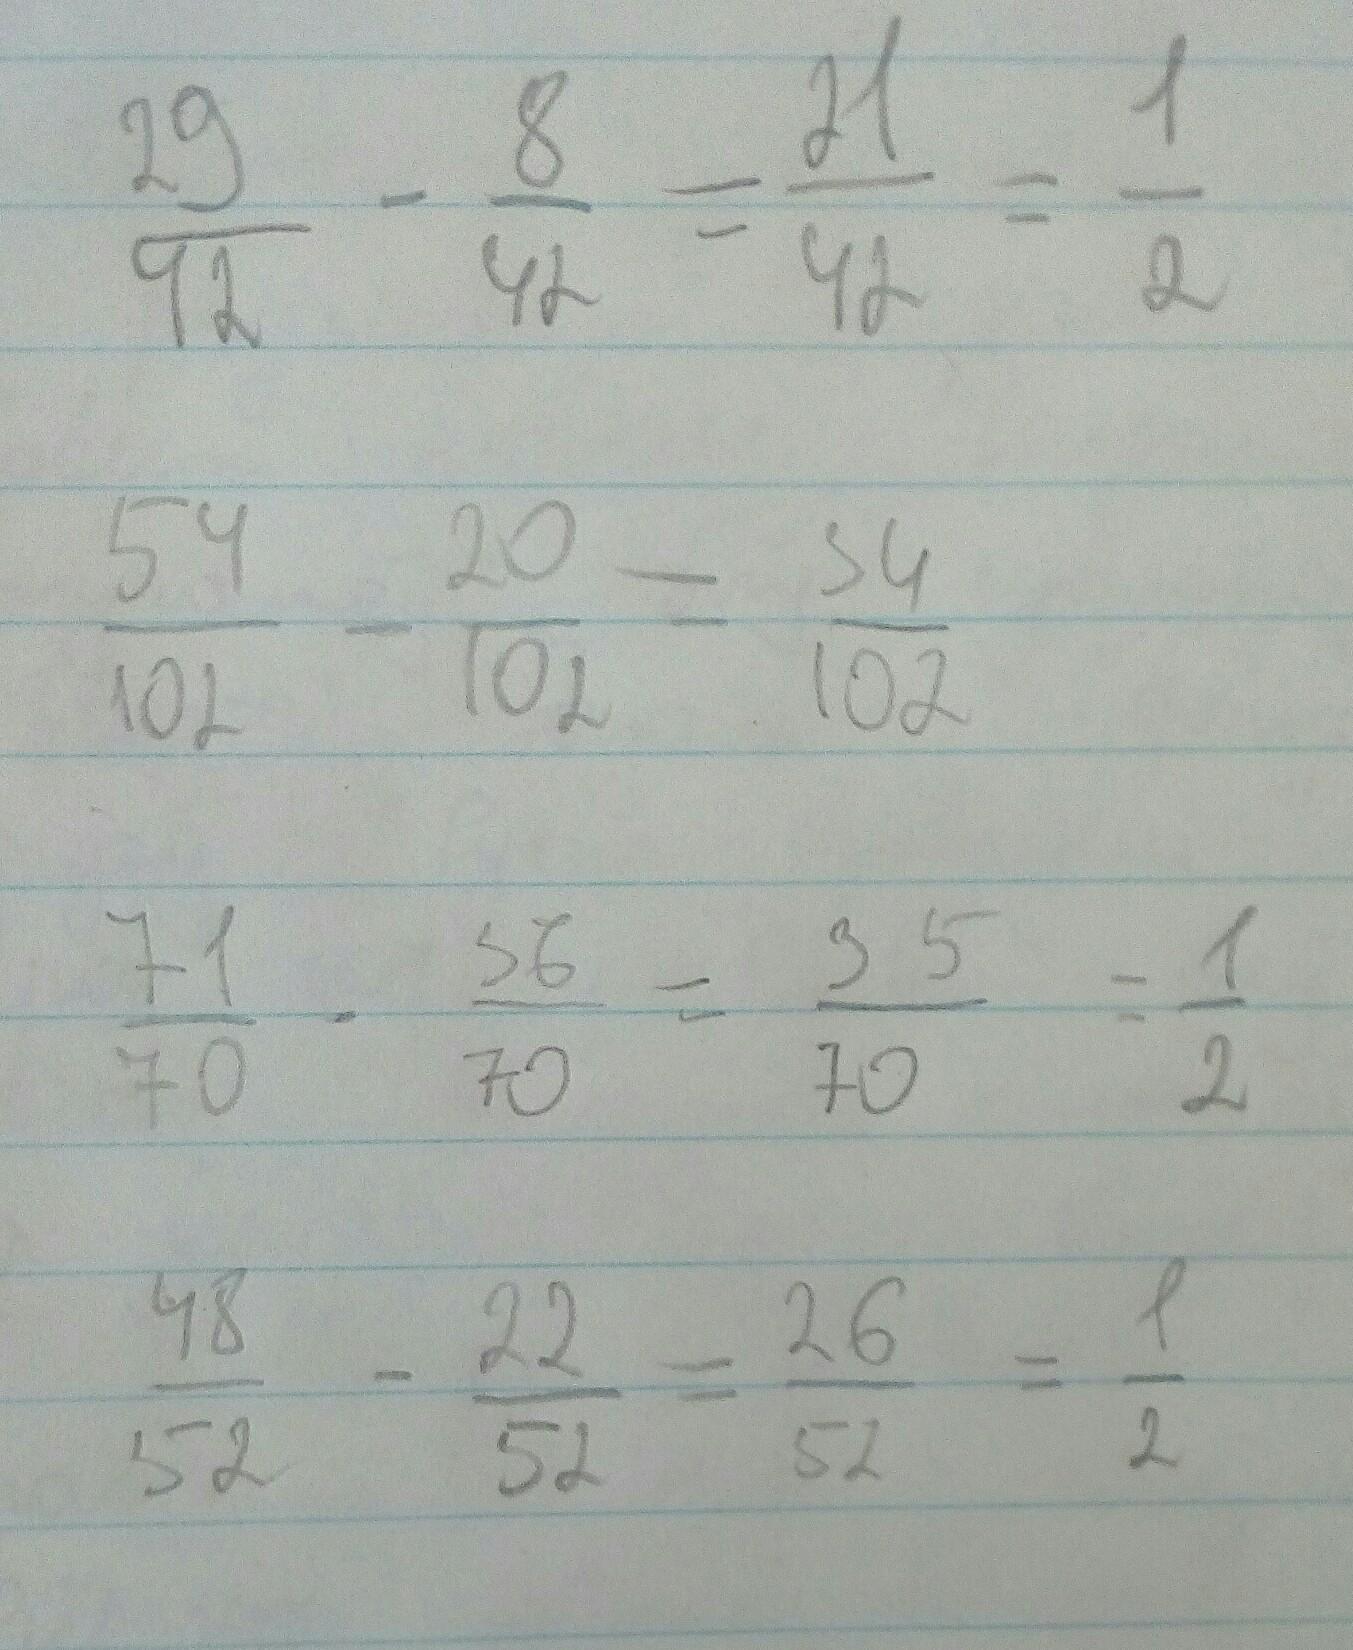 29/42 - 8/42 = 21/42 = 1/2
54/102 - 20/102 = 34/102
71/70 - 36/70 = 35/70 = 1/2
48/52 - 22/52 = 26/52 = 1/2